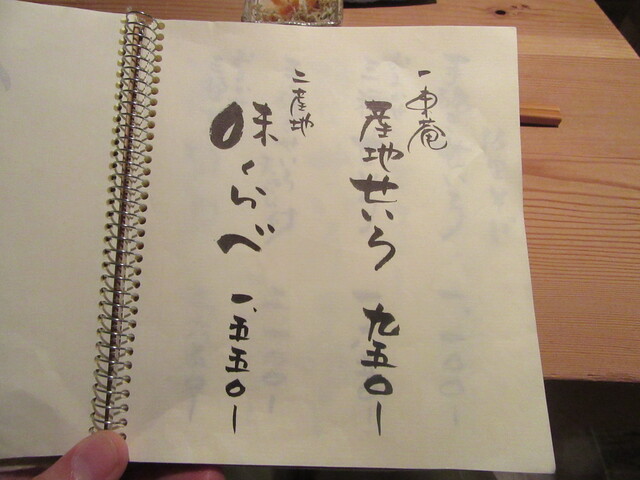 一東菴
産地せいろ 九五〇ー
二産地
味くらべ 一、五五〇ー